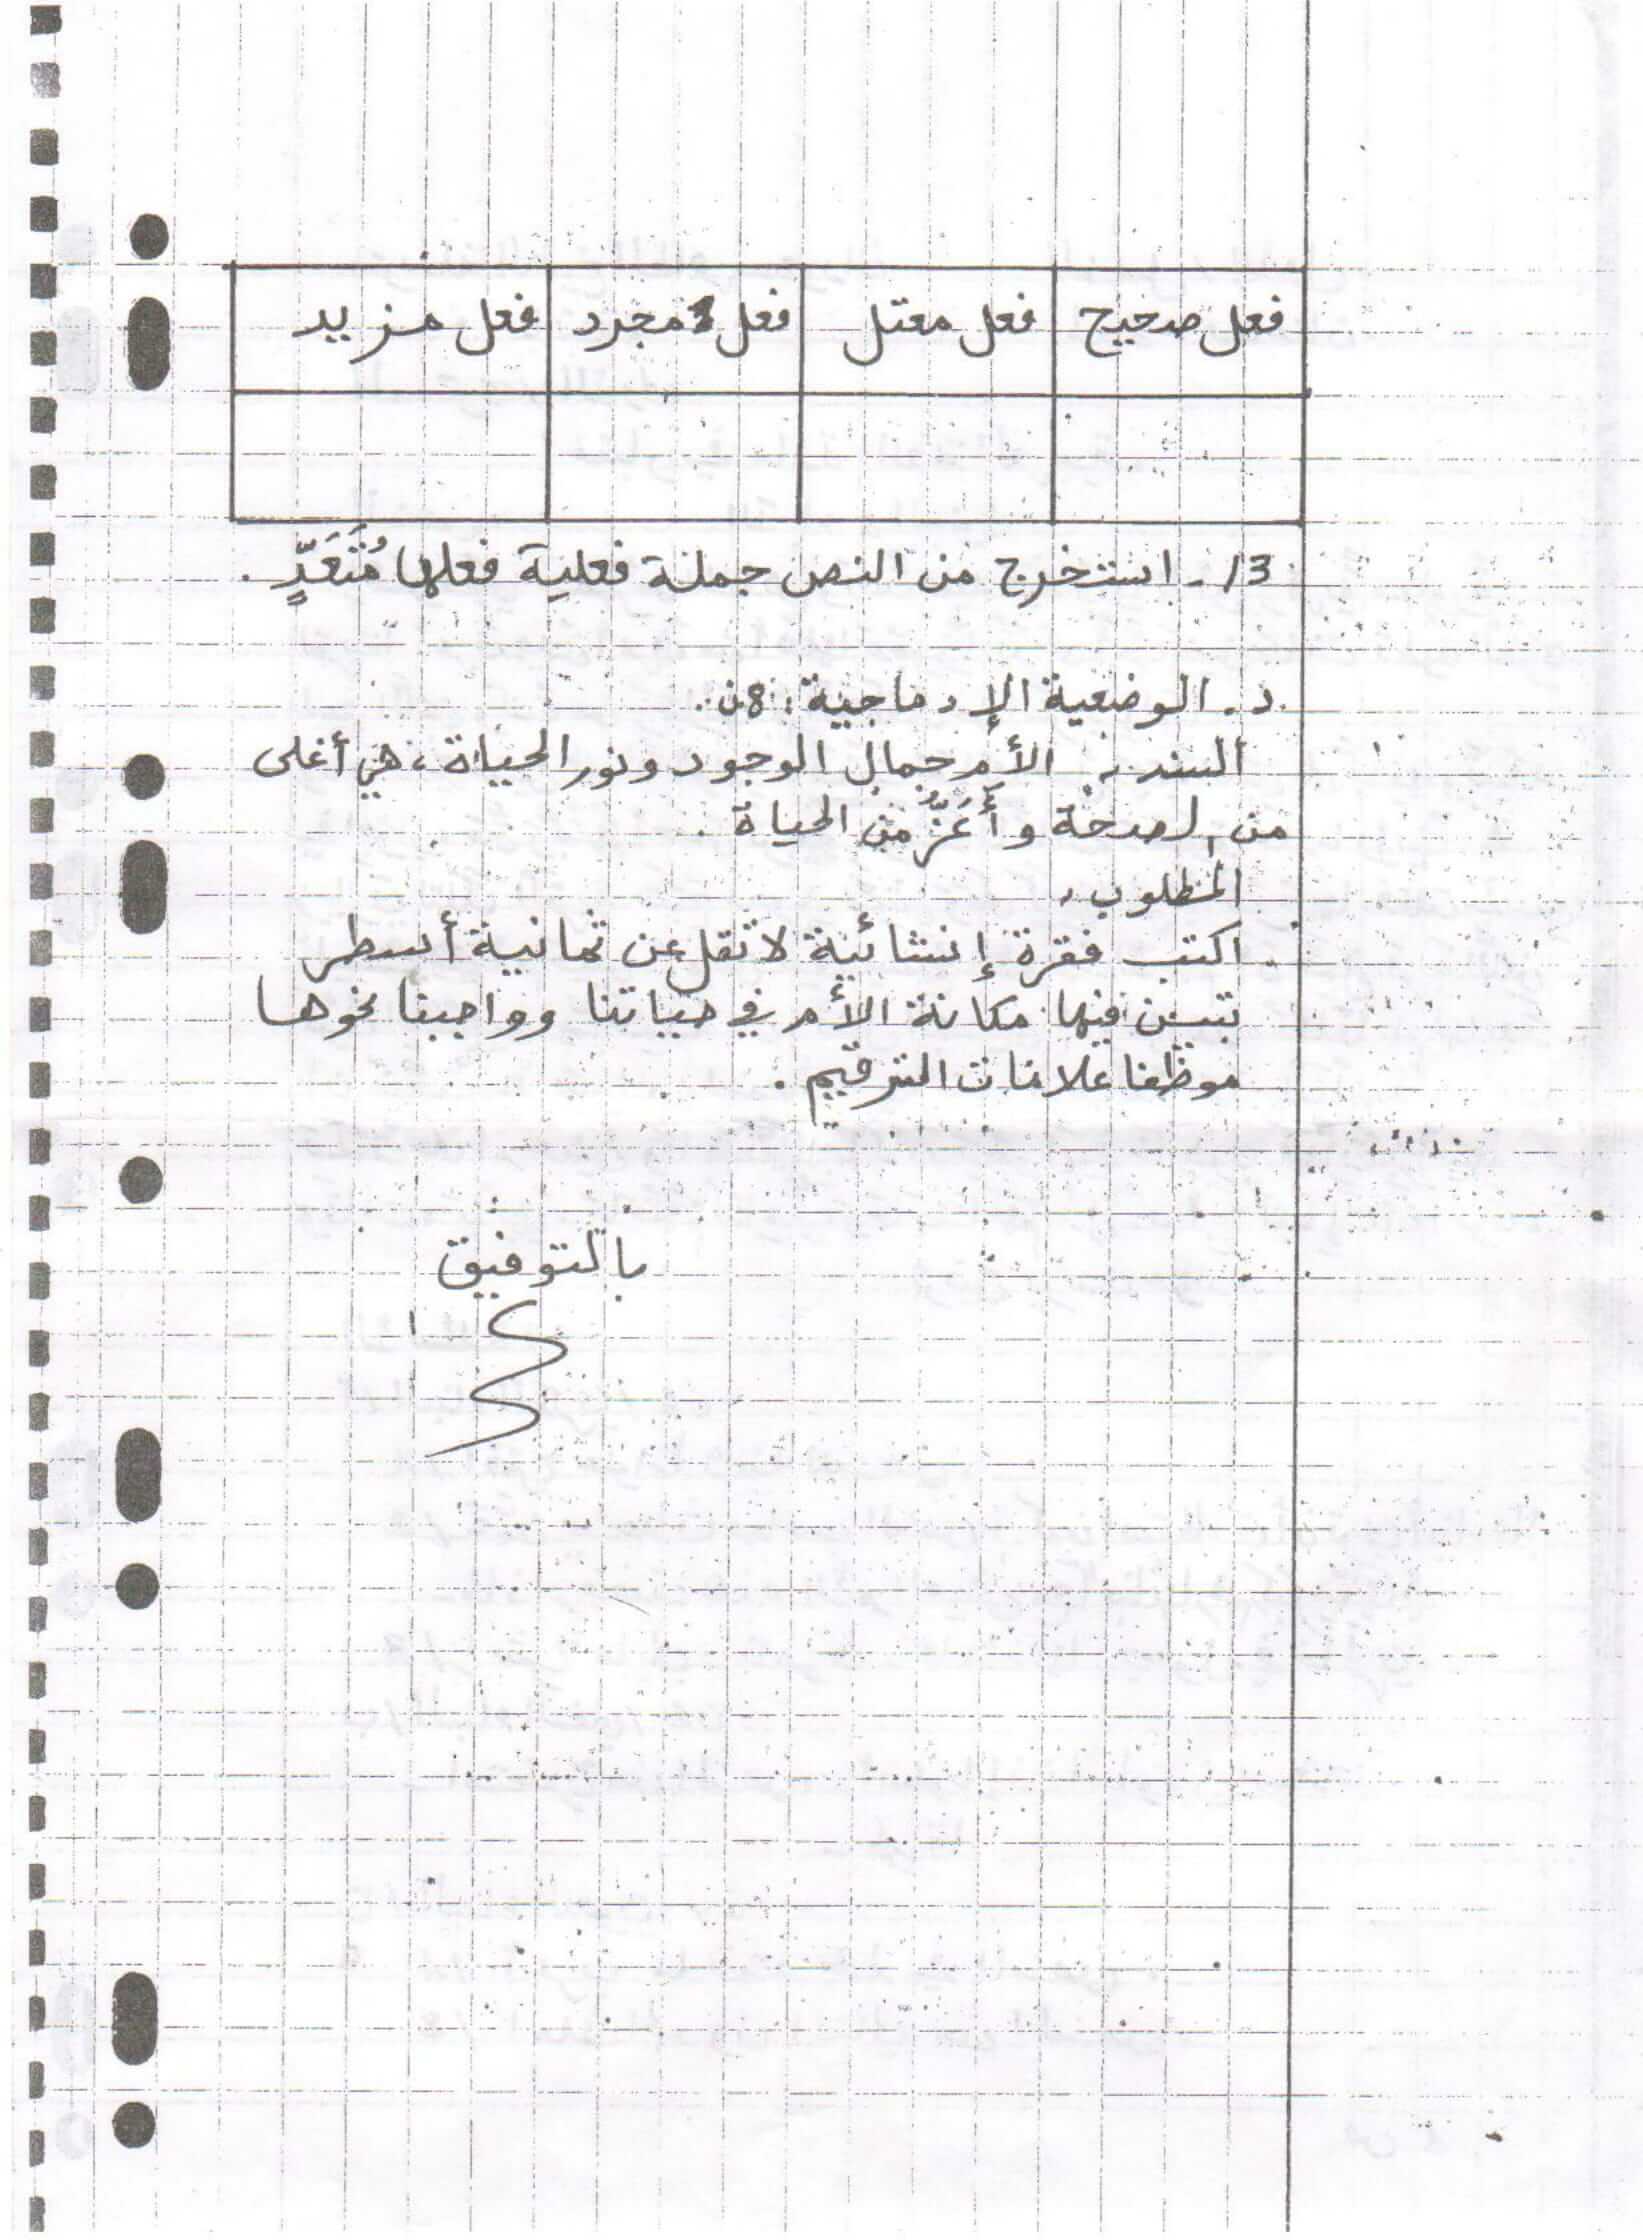 فعل صحيح فعل معتل فعل مجرد فعل مزيد
3/- استخرج من النص جملة فعلية فعلها مُتَعَدٍّ .
د. الوضعية الإدماجية : 8ن.
السند: الأم جمال الوجود ونور الحياة، هي أغلى
من الصحة وأَعَزُّ من الحياة .
المطلوب:
اكتب فقرة إنشائية لا تقل عن ثمانية أسطر
تبين فيها مكانة الأم في حياتنا وواجبنا نحوها
موظفا علامات الترقيم .
بالتوفيق